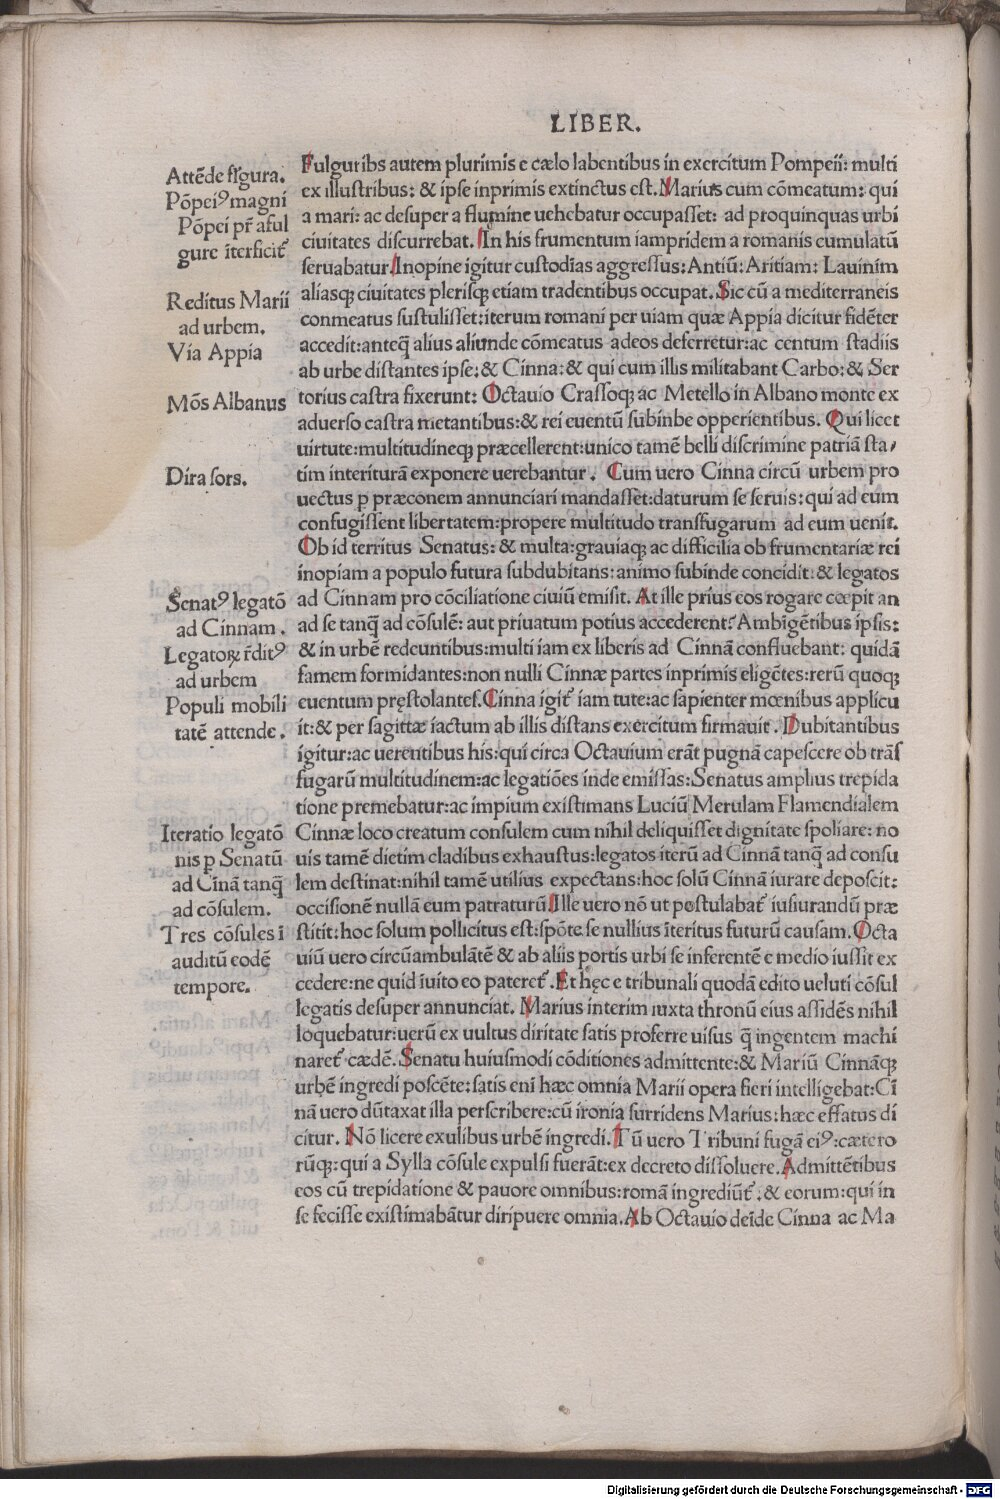 LIBER.
Attēde fígura.
Pōpeiꝰ magni
Pōpei pr̄ aful
gure īterficit᷑
Reditus Marii
ad urbem.
Via Appia
Mōs Albanus
Dira sors.
Senatꝰ legatō
ad Cinnam.
Legatoꝝ r̄ditꝰ
ad urbem
Populi mobili
tatē attende.
Iteratio legatō
nis ꝑ Senatū
ad Cīnā tanq̄
ad cōsulem.
Tres cōsules ī
auditū eodē
tempore.
Fulguribs autem plurimis e cælo labentibus in exercitum Pompeii: multi
ex illustribus: & ipse inprimis extinctus est. Marius cum cōmeatum: qui
a mari: ac desuper a flumine uehebatur occupasset: ad proquinquas urbi
ciuitates discurrebat. In his frumentum iampridem a romanis cumulatū
seruabatur. Inopine igitur custodias aggressus: Antiū: Aritiam: Lauinim
aliasqꝫ ciuitates plerisqꝫ etiam tradentibus occupat. Sic cū a mediterraneis
conmeatus sustulisset: iterum romani per uiam quæ Appia dicitur fidēter
accedit: anteq̄ alius aliunde cōmeatus adeos deferretur: ac centum stadiis
ab urbe distantes ipse: & Cinna: & qui cum illis militabant Carbo: & Ser
torius castra fixerunt: Octauio Crassoqꝫ ac Metello in Albano monte ex
aduerso castra metantibus: & rei euentū subinbe opperientibus. Qui licet
uirtute: multitudineqꝫ præcellerent: unico tamē belli discrimine patriā sta/
tim interiturā exponere uerebantur. Cum uero Cinna circū urbem pro
uectus ꝑ præconem annunciari mandasset: daturum se seruis: qui ad eum
confugissent libertatem: propere multitudo transfugarum ad eum uenit.
Ob id territus Senatus: & multa: grauiaqꝫ ac difficilia ob frumentariæ rei
inopiam a populo futura subdubitans: animo subinde concidit: & legatos
ad Cinnam pro cōciliatione ciuiū emisit. At ille prius eos rogare cœpit an
ad se tanq̄ ad cōsulē: aut priuatum potius accederent? Ambigētibus ipsis:
& in urbē redeuntibus: multi iam ex liberis ad Cinnā confluebant: quidā
famem formidantes: non nulli Cinnæ partes inprimis eligētes: rerū quoqꝫ
euentum pręstolantes. Cinna igit᷑ iam tute: ac sapienter mœnibus applicu
it: & per sagittæ iactum ab illis distans exercitum firmauit. Dubitantibus
igitur: ac uerentibus his: qui circa Octauium erāt pugnā capescere ob trās
fugarū multitudinem: ac legatiōes inde emissas: Senatus amplius trepida
tione premebatur: ac impium existimans Luciū Merulam Flamendialem
Cinnæ loco creatum consulem cum nihil deliquisset dignitate spoliare: no
uis tamē dietim cladibus exhaustus: legatos iterū ad Cinnā tanq̄ ad consu
lem destinat: nihil tamē utilius expectans: hoc solū Cinnā iurare deposcit:
occisionē nullā eum patraturū. Ille uero nō ut postulabat᷑ iusiurandū præ
stitit: hoc solum pollicitus est: spōte se nullius īteritus futurū causam. Octa
uiū uero circūambulātē & ab aliis portis urbi se inferentē e medio iussit ex
cedere: ne quid īuito eo pateret᷑. Et hęc e tribunali quodā edito ueluti cōsul
legatis desuper annunciat. Marius interim iuxta thronū eius assidēs nihil
loquebatur: uerū ex uultus diritate satis proferre uisus q̄ ingentem machi
naret᷑ cædē. Senatu huiusmodi cōditiones admittente: & Mariū Cinnāqꝫ
urbē ingredi poscēte: satis eni hæc omnia Marii opera fieri intelligebat: Ci
nā uero dūtaxat illa perscribere: cū ironia surridens Marius: hæc effatus di
citur. Nō licere exulibus urbē ingredi. Tū uero Tribuni fugā eiꝰ: cætero
rūqꝫ: qui a Sylla cōsule expulsi fuerāt: ex decreto dissoluere. Admittētibus
eos cū trepidatione & pauore omnibus: romā ingrediūt᷑. & eorum: qui in
se fecisse existimabātur diripuere omnia. Ab Octauio deīde Cinna ac Ma
Digitalisierung gefördert durch die Deutsche Forschungsgemeinschaft - DFG